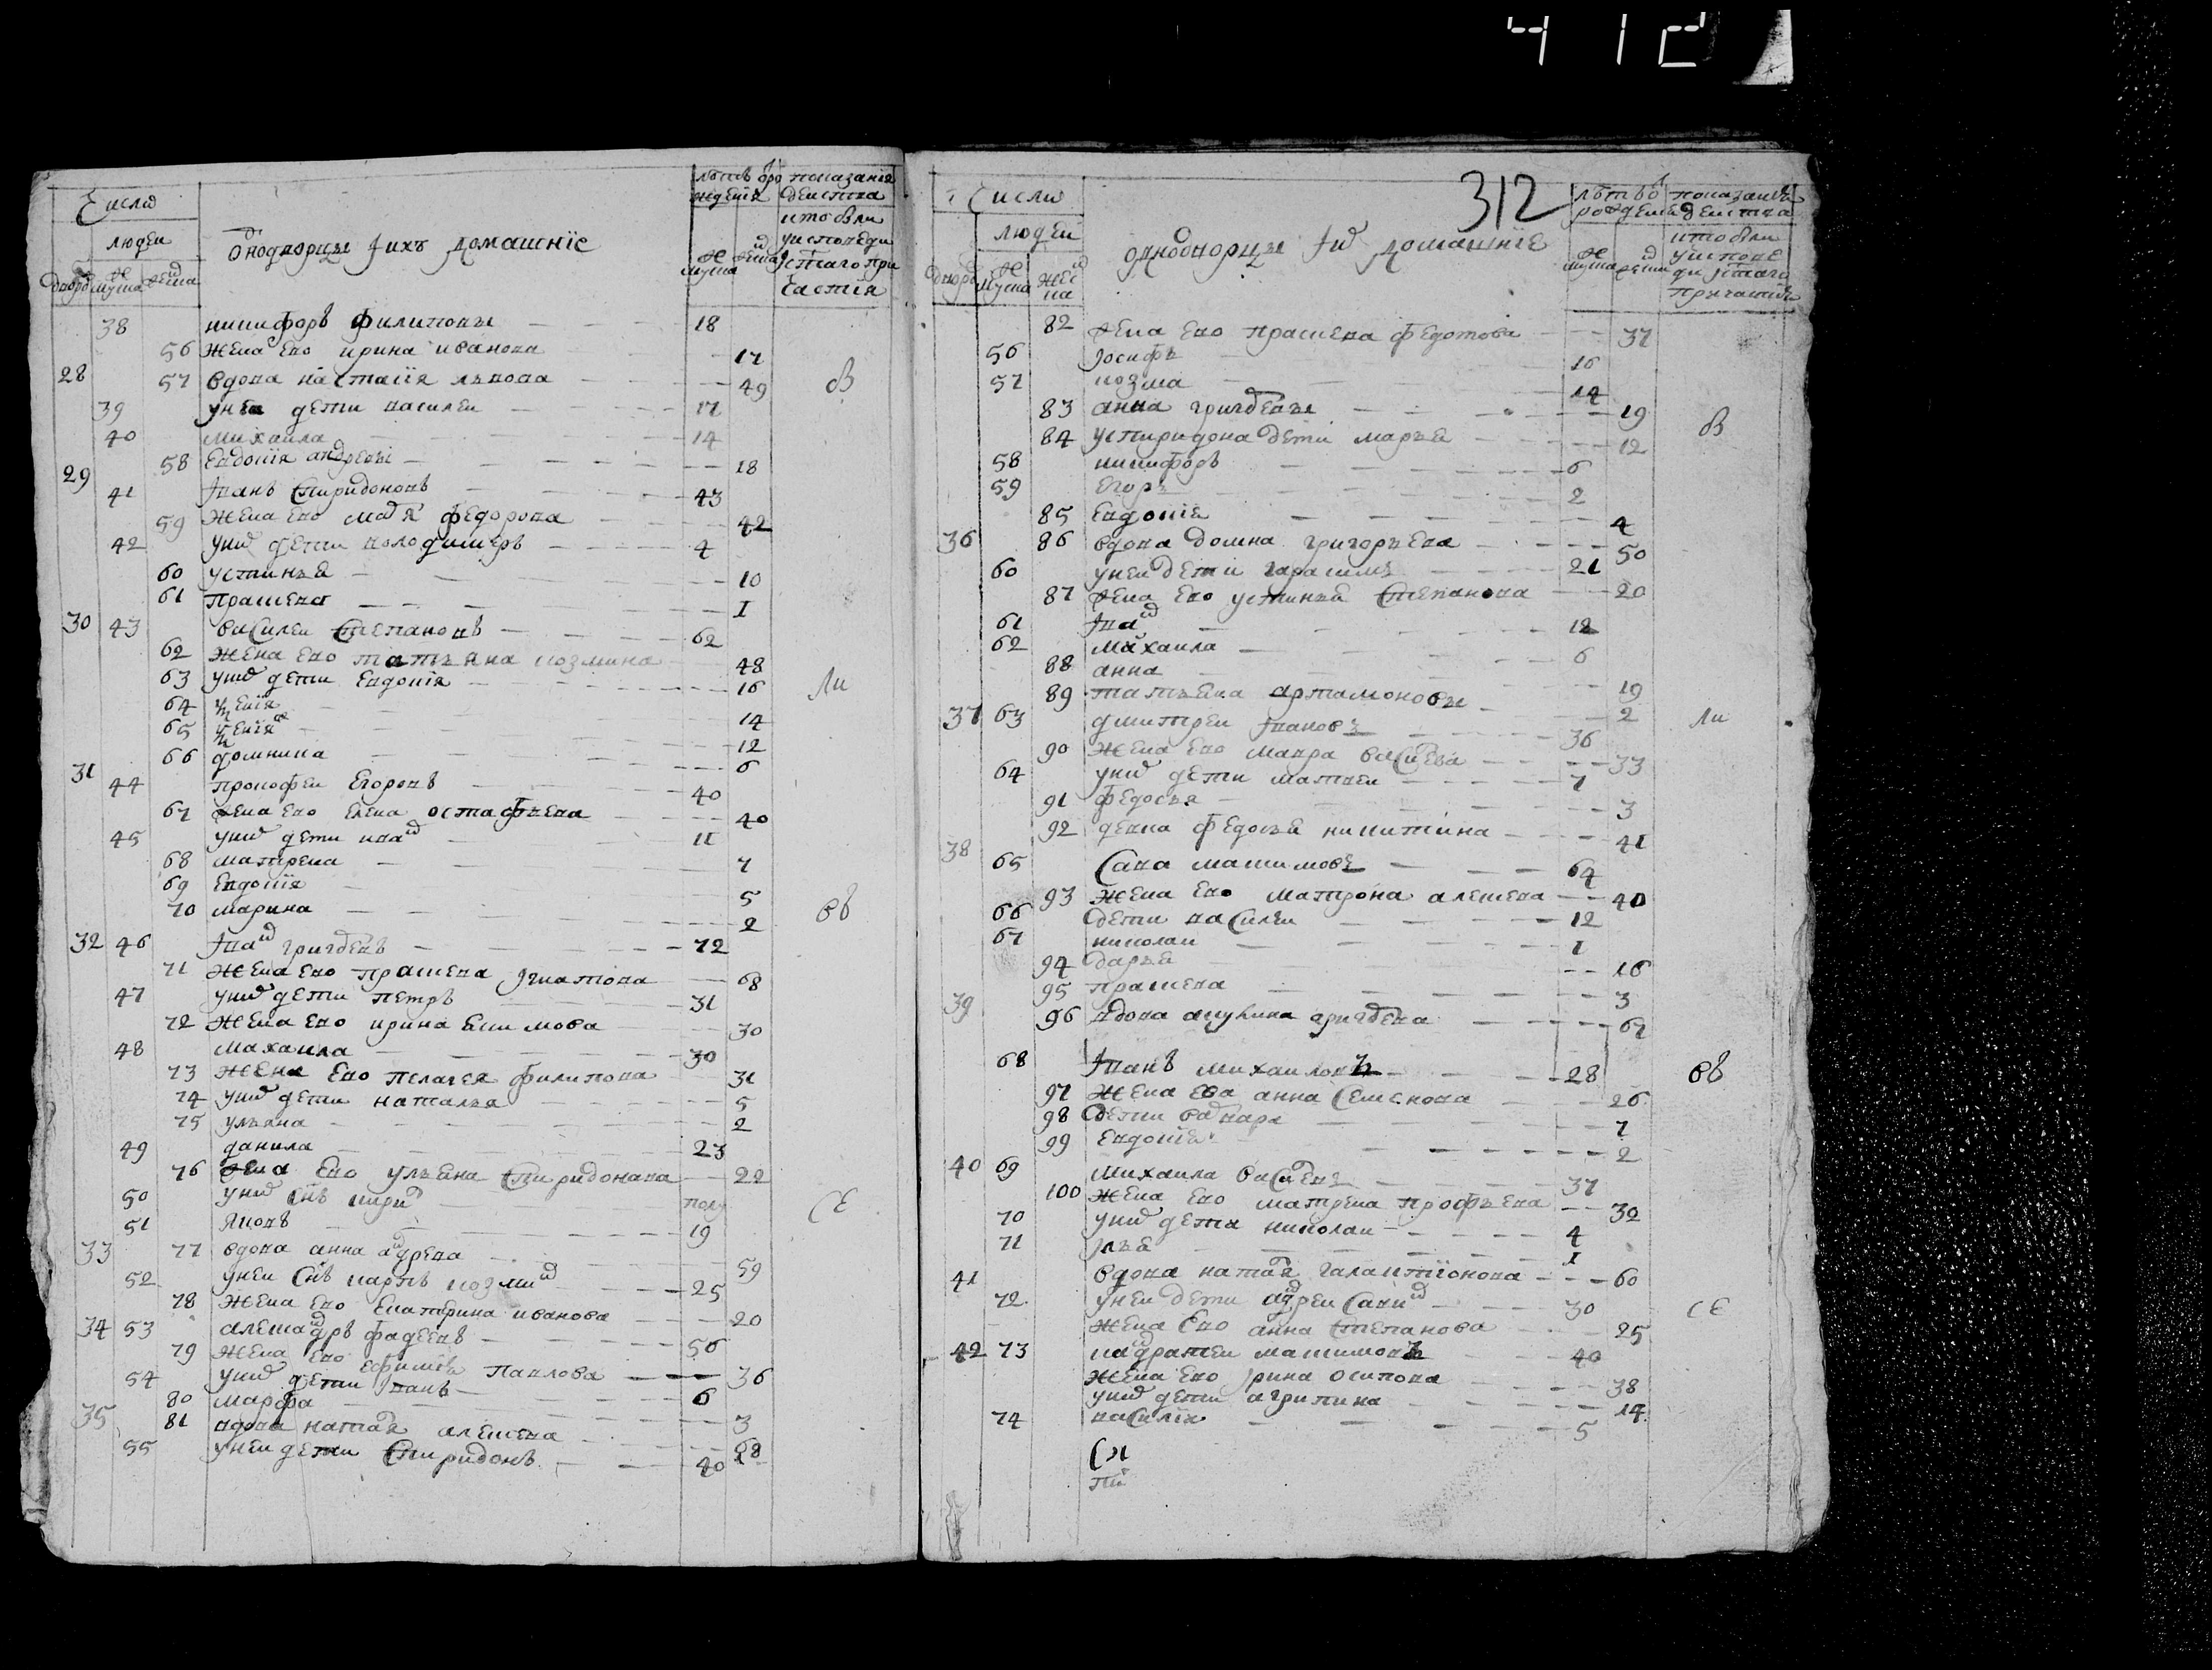 412
Число
людеи
дворов
мужеска
женска
однодворцы и ихъ домашнїе
показанїе
деиства
кто были
у исповеди
причастїя
38 никифоръ филиповы 18
56 жена ево ирина иванова 17
28 57 вдова настасїя лвова 49 в
39 у нея дети василеи 17
40 михаила 14
58 евдокїя андреевы 18
29 41 иванъ спиридоновъ 43
59 жена ево федорова 42
42 у них дети володимеръ 4
60 устинья 10
61 прасковя 1
30 43 василеи степановъ 62
62 жена ево татьяна козмина 48
63 у них дети евдокїя 16 ли
64 14
65 12
66 домнина 6
31 44 прокофеи егоровъ 40
67 жена ево елена остафьева 40
45 у них дети иван 11
68 матрена 7
69 евдокїя 5
70 марина 2 вв
32 46 иван григоревъ 72
71 жена ево прасковя игнатова 68
47 у них дети петръ 31
72 жена ево ирина 30
48 михаила 30
73 жена ево пелагея филипова 31
74 у них дети наталья 5
75 ульяна 2
49 данила 23
76 жена ево ульяна спиридонава 22
50 у них снъ полу се
51 яковъ 19
33 77 вдова анна андрева 59
52 у неи снъ карпъ козмин 25
78 жена ево екатерина иванова 20
34 53 александръ фадеевъ 56
79 жена ево павлова 36
54 у них дети иванъ 6
80 марфа 3
35 81 вдова наталя алексева
55 у неи дети спиридонъ 40
312
Число
людеи
дворов
мужеска
женска
однодворцы и их домашнїе
показанїе
деиства
кто были
82 жена ево прасковя федотова 37
56 иосифъ 16
57 козма 14
83 анна григоревы 19
84 у спиридона дети марья 12 в
58 никифоръ 6
59 егоръ 2
85 евдокїя 4
36 86 вдова домна григорьева 50
60 у неи дети гарасимъ 21
87 жена ево устинья степанова 20
61 иван 12
62 михаила 6
88 анна 19
89 татьяна артамоновы 2
37 63 дмитреи ивановъ 36 ли
90 жена ево мавра василева 33
64 у них дети матвеи 7
91 федосья 3
92 девка федосья никитина 41
38 65 сава максимовъ 64
93 жена ево матрона алексева 40
66 дети василеи 12
67 николаи 1
94 дарья 16
95 прасковя 3
39 96 вдова григорева 67
68 иванъ михаиловъ 28 вв
97 жена ева анна семенова 26
98 дети варвара 7
99 евдокїя 2
40 69 михаила василевъ 37
100 жена ево матрена 32
70 у них дети николаи 4
71 илья 1
41 вдова наталя галактїонова 60
72 у неи дети андреи савин 30 се
жена ево анна степанова 25
42 73 максимовъ 40
жена ево ирина осипова 38
у них дети агрипина 14
74 василїя 5